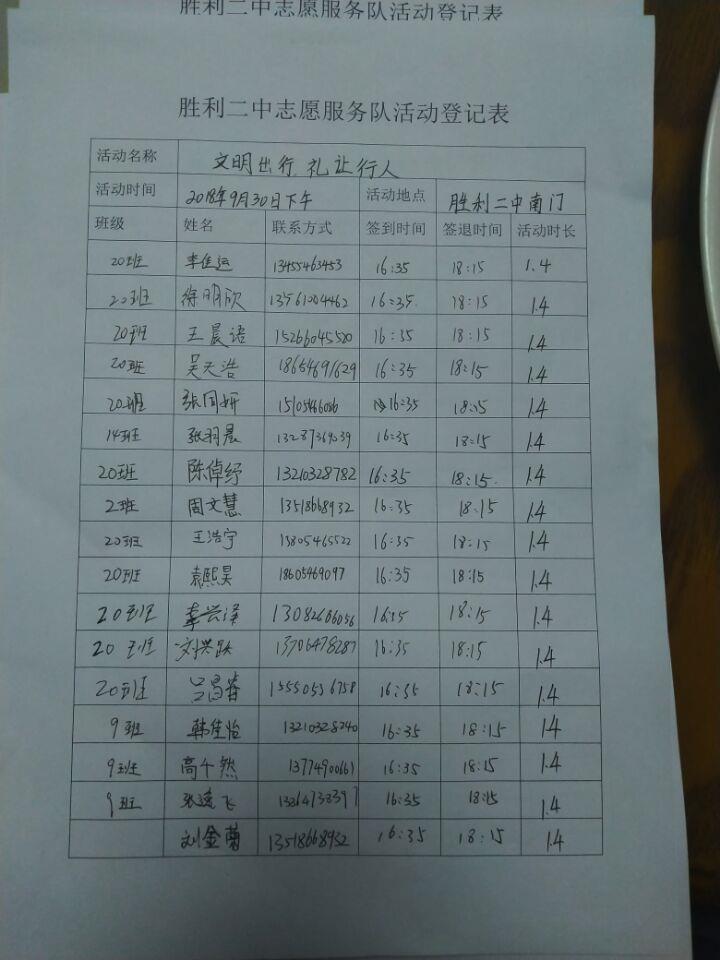 胜利二中志愿服务队活动登记表
胜利二中志愿服务队活动登记表
活动名称 文明出行 礼让行人
活动时间 2018年9月30日下午 活动地点 胜利二中南门
班级 姓名 联系方式 签到时间 签退时间 活动时长
20班 李佳运 13455463453 16:35 18:15 1.4
20班 徐明欣 13561004462 16:35 18:15 1.4
20班 王晨语 15266045520 16:35 18:15 1.4
20班 吴天浩 18654691629 16:35 18:15 1.4
20班 张国妍 16:35 18:15 1.4
14班 张羽晨 13287369039 16:35 18:15 1.4
20班 陈倬纾 13210328782 16:35 18:15 1.4
2班 周文慧 13518668932 16:35 18:15 1.4
20班 王浩宇 13805465522 16:35 18:15 1.4
20班 袁熙昊 18605469097 16:35 18:15 1.4
20班 李兴泽 13082686056 18:15 1.4
20班 刘兴跃 13706478287 16:35 18:15 1.4
20班 吕昌睿 15550536758 16:35 18:15 1.4
9班 韩佳怡 13210328240 16:35 18:15 1.4
9班 高千然 13774900661 16:35 18:15 1.4
9班 张远飞 16:35 18:15 1.4
刘金菊 13518668932 16:35 18:15 1.4